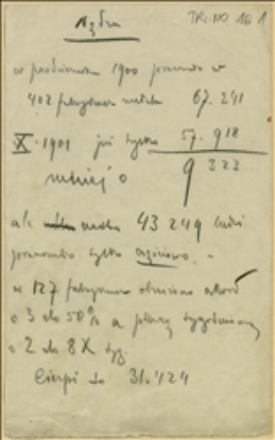 Nędza
TR. NO 16 1
w październiku 1900 pracowało w
402 fabrykach 67.241
X. 1901 już tylko 57.918
mniej o 9 323
ale 43 249 ludzi
pracowało tylko częściowo. -
w 127 fabrykach obniżono akord
o 3 do 50% a płacę tygodniową
o 2 do 8 X tyg.
Cierpi do 31.424